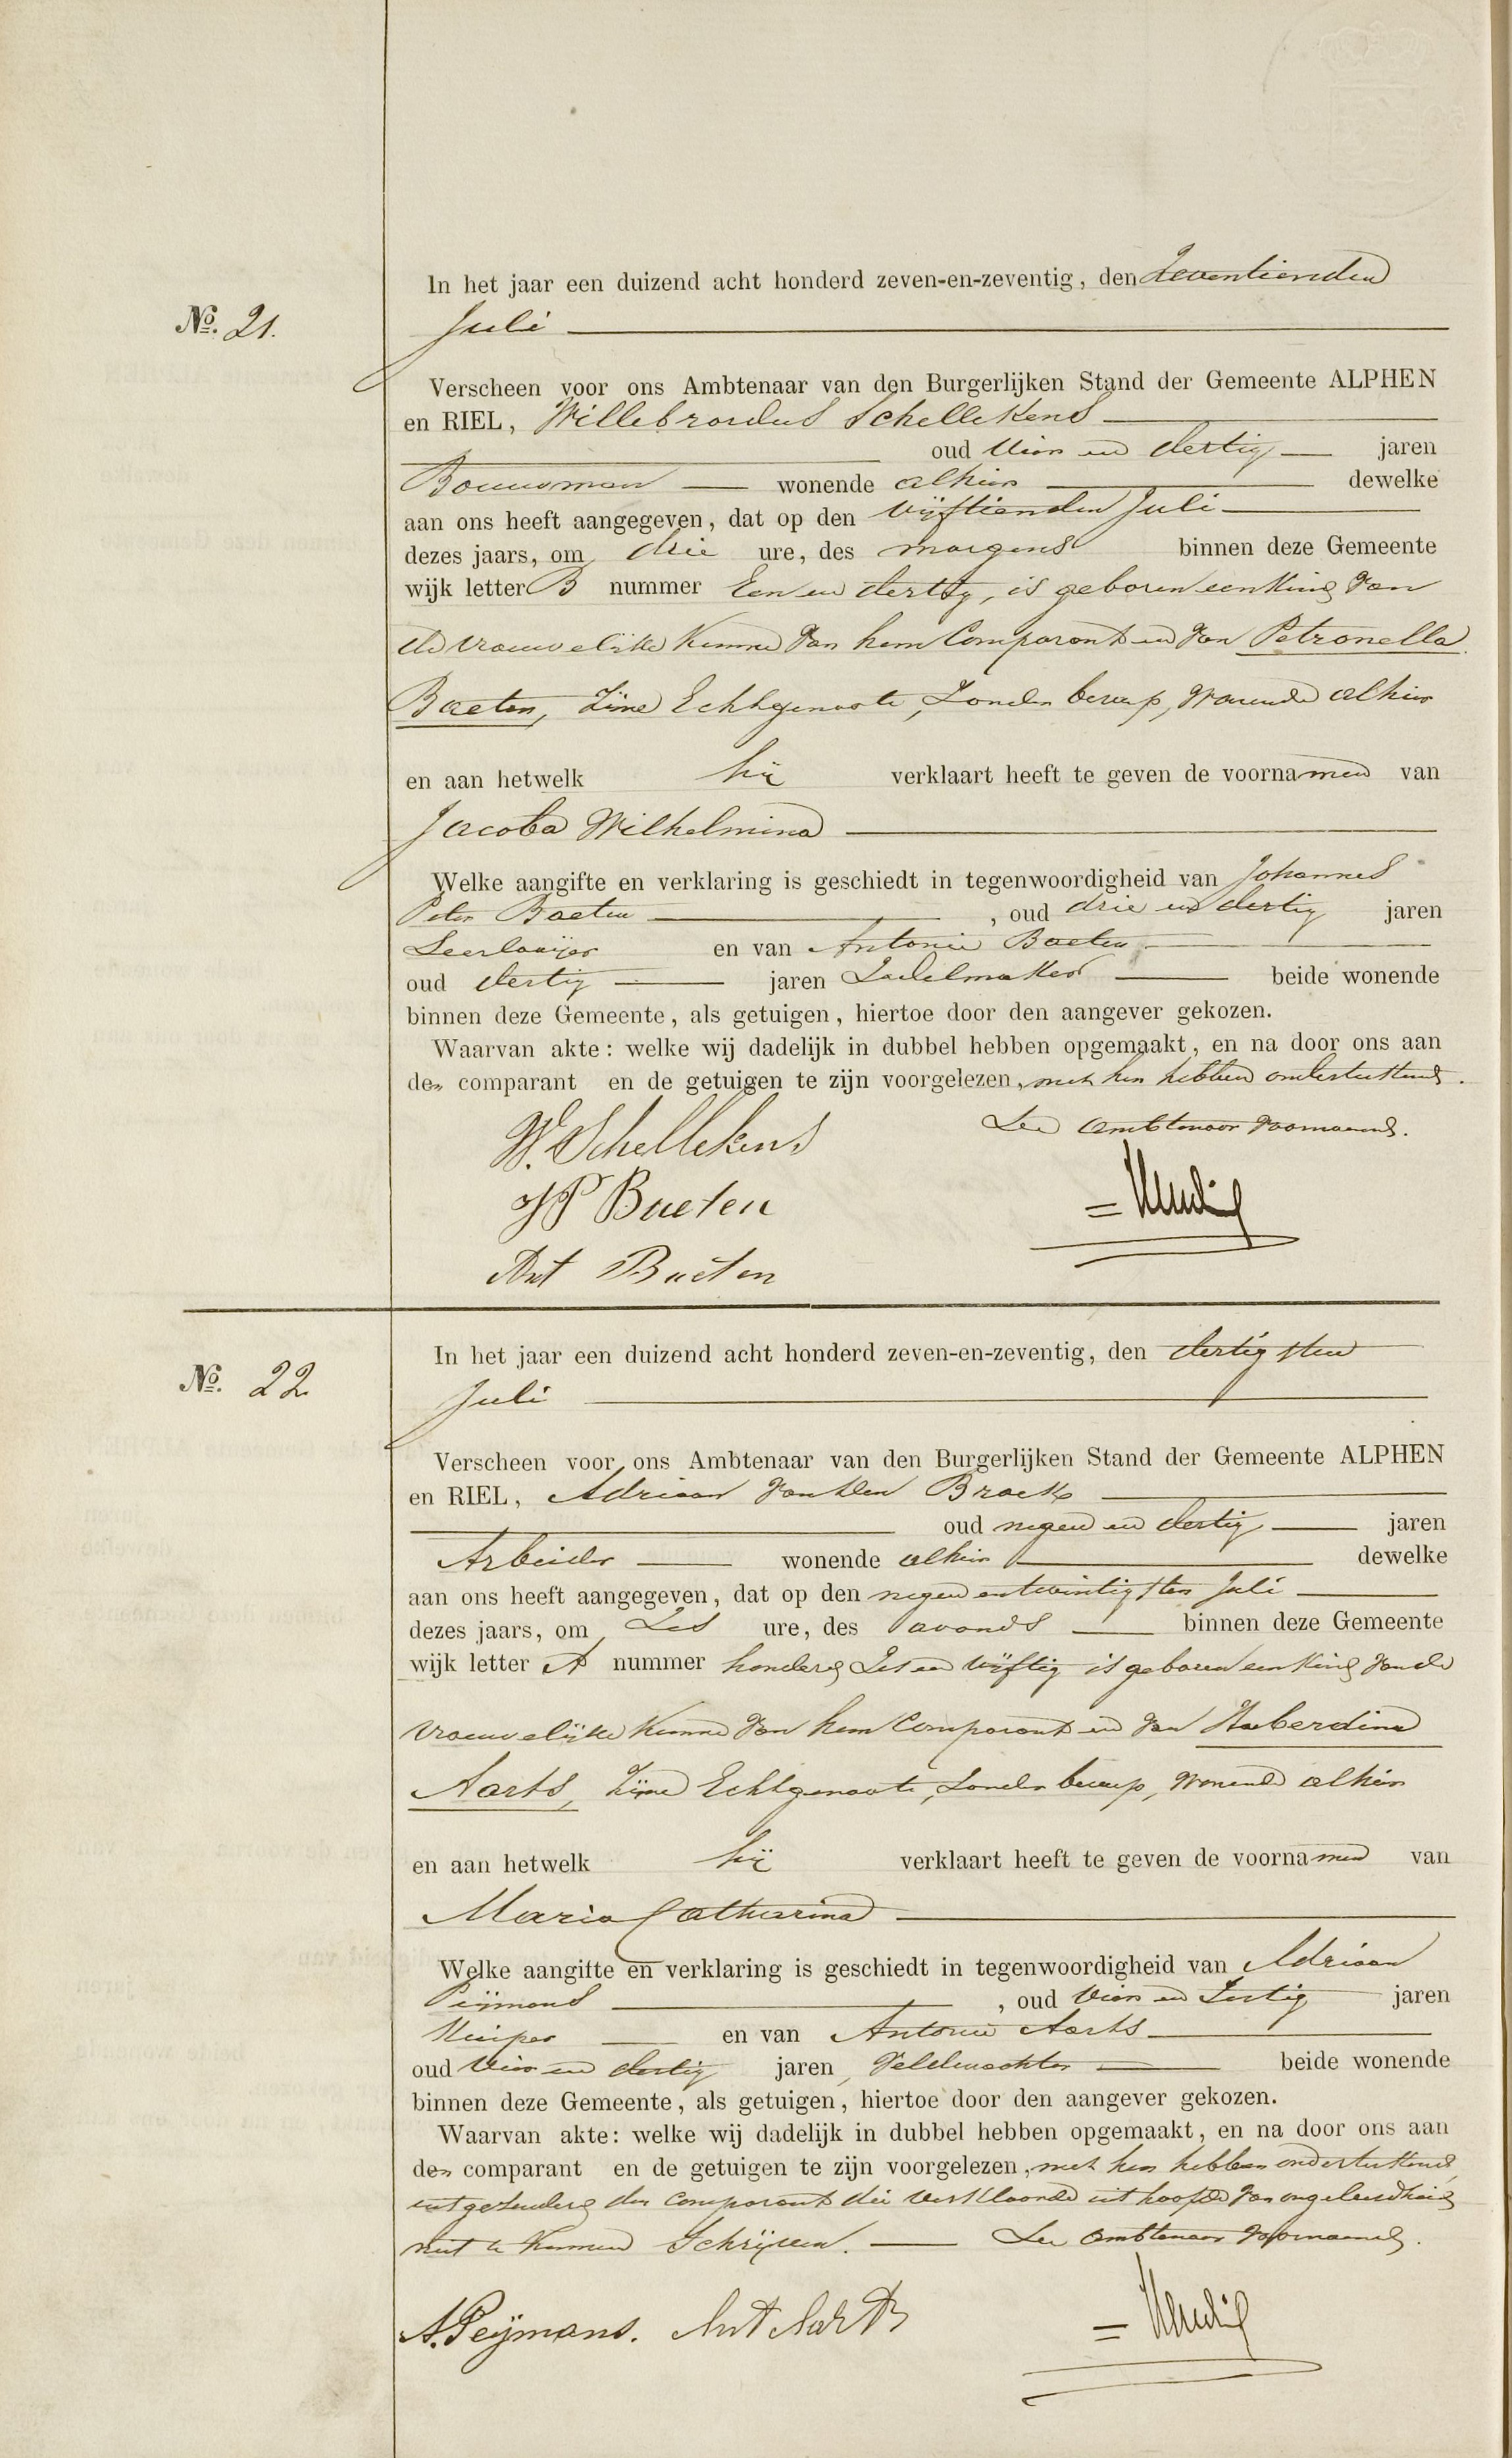 In het jaar een duizend acht honderd zeven-en-zeventig, den Zeventienden
No. 21.
Juli
Verscheen voor ons Ambtenaar van den Burgerlijken Stand der Gemeente ALPHEN
en RIEL, Willebrordus Schellekens
oud Vier en dertig jaren
Bouwman wonende alhier dewelke
aan ons heeft aangegeven, dat op den vijftienden Juli
dezes jaars, om drie ure, des morgens binnen deze Gemeente
wijk letter B nummer Een en dertig, is geboren een Kind van
de vrouwelijke Kunne van hem Comparant en van Petronella
Baeten, Zijne Echtgenoote, Zonder beroep, Wonende alhier
en aan hetwelk hij verklaart heeft te geven de voornamen van
Jacoba Wilhelmina
Welke aangifte en verklaring is geschiedt in tegenwoordigheid van Johannes
Peter Baeten , oud drie en dertig jaren
Leerlooijer en van Antonie Baeten
oud dertig jaren Zadelmaker beide wonende
binnen deze Gemeente, als getuigen, hiertoe door den aangever gekozen.
Waarvan akte: welke wij dadelijk in dubbel hebben opgemaakt, en na door ons aan
den comparant en de getuigen te zijn voorgelezen, met hen hebben onderteekend.
Den Ambtenaar Voornoemd.
W. Schellekens
JP Baeten
Ant Baeten
In het jaar een duizend acht honderd zeven-en-zeventig, den dertigsten
No. 22
Juli
Verscheen voor ons Ambtenaar van den Burgerlijken Stand der Gemeente ALPHEN
en RIEL, Adriaan van den Broek
oud negen en dertig jaren
Arbeider wonende alhier dewelke
aan ons heeft aangegeven, dat op den negen en twintigsten Juli
dezes jaars, om Zes ure, des avonds binnen deze Gemeente
wijk letter A nummer honderd Zes en vijftig is geboren een Kind van de
vrouwelijke Kunne van hem Comparant en van Huberdina
Aarts, Zijne Echtgenoote, Zonder beroep, Wonende alhier
en aan hetwelk hij verklaart heeft te geven de voornamen van
Maria Catharina
Welke aangifte en verklaring is geschiedt in tegenwoordigheid van Adriaan
Peijmans , oud Vier en Zestig jaren
Kuiper en van Antonie Aarts
oud Vier en dertig jaren, Veldwachter beide wonende
binnen deze Gemeente, als getuigen, hiertoe door den aangever gekozen.
Waarvan akte: welke wij dadelijk in dubbel hebben opgemaakt, en na door ons aan
den comparant en de getuigen te zijn voorgelezen, met hen hebben onderteekend,
uitgezonderd den Comparant die verklaarde uit hoofde van ongeleerdheid
niet te Kunnen Schrijven. Den Ambtenaar Voornoemd.
A. Peijmans. Ant Aarts